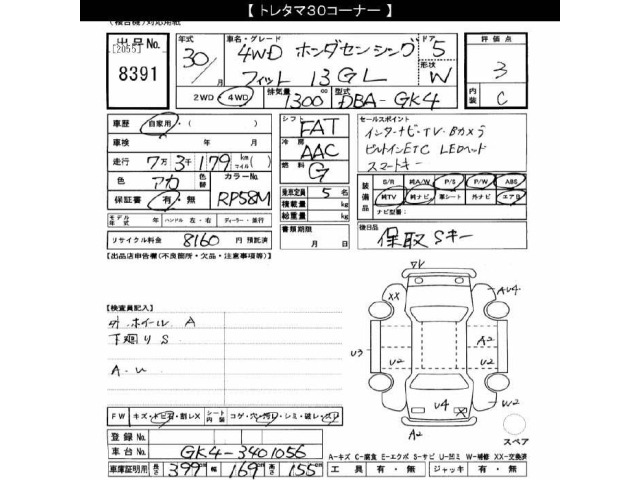 【 トレタマ30コーナー 】
(複合機)対応用紙
出品No.
[2055]
8391
年式 30 / 月
車名・グレード 4WD ホンダセンシング
フィット 13GL
ドア 5
形状 W
2WD・4WD 排気量 1300cc 型式 DBA-GK4
評価点 3
内装 C
車歴 自家用・( )
車検 年 月
走行 7万3千179 km マイル
色 アカ 色替 カラーNo. RP58M
保証書 有・無
モデル年式 年 ハンドル 左・右 ディーラー・並行
リサイクル料金 8160 円 預託済
シフト FAT
冷房 AAC
燃料 G
乗車定員 5 名
積載量 kg
総重量 kg
書類期限 月 日
セールスポイント
インターナビ・TV・Bカメラ
ビルトインETC LEDヘッド
スマートキー
装備品 S/R 純A/W P/S P/W ABS
純TV 純ナビ 革シート 外ナビ エアB
ナビ型番:
後日品 保取Sキー
【出品店申告欄(不良箇所・欠品・注意事項等)】
【検査員記入】
ホイール A
下廻り S
A・U
▽V
XX
AU4
U3
U2
A2
U2
U4
X
W2
A2
スペア
FW キズ・トビ石・割レX シート内装 コゲ・穴・汚レ・シミ・破レ・スリ
登録No.
車台No. GK4-3401056
車庫証明用 長さ 399 cm 幅 169 cm 高さ 155 cm
A-キズ C-腐食 E-エクボ S-サビ U-凹ミ W-補修 XX-交換済
工具 有・無 ジャッキ 有・無